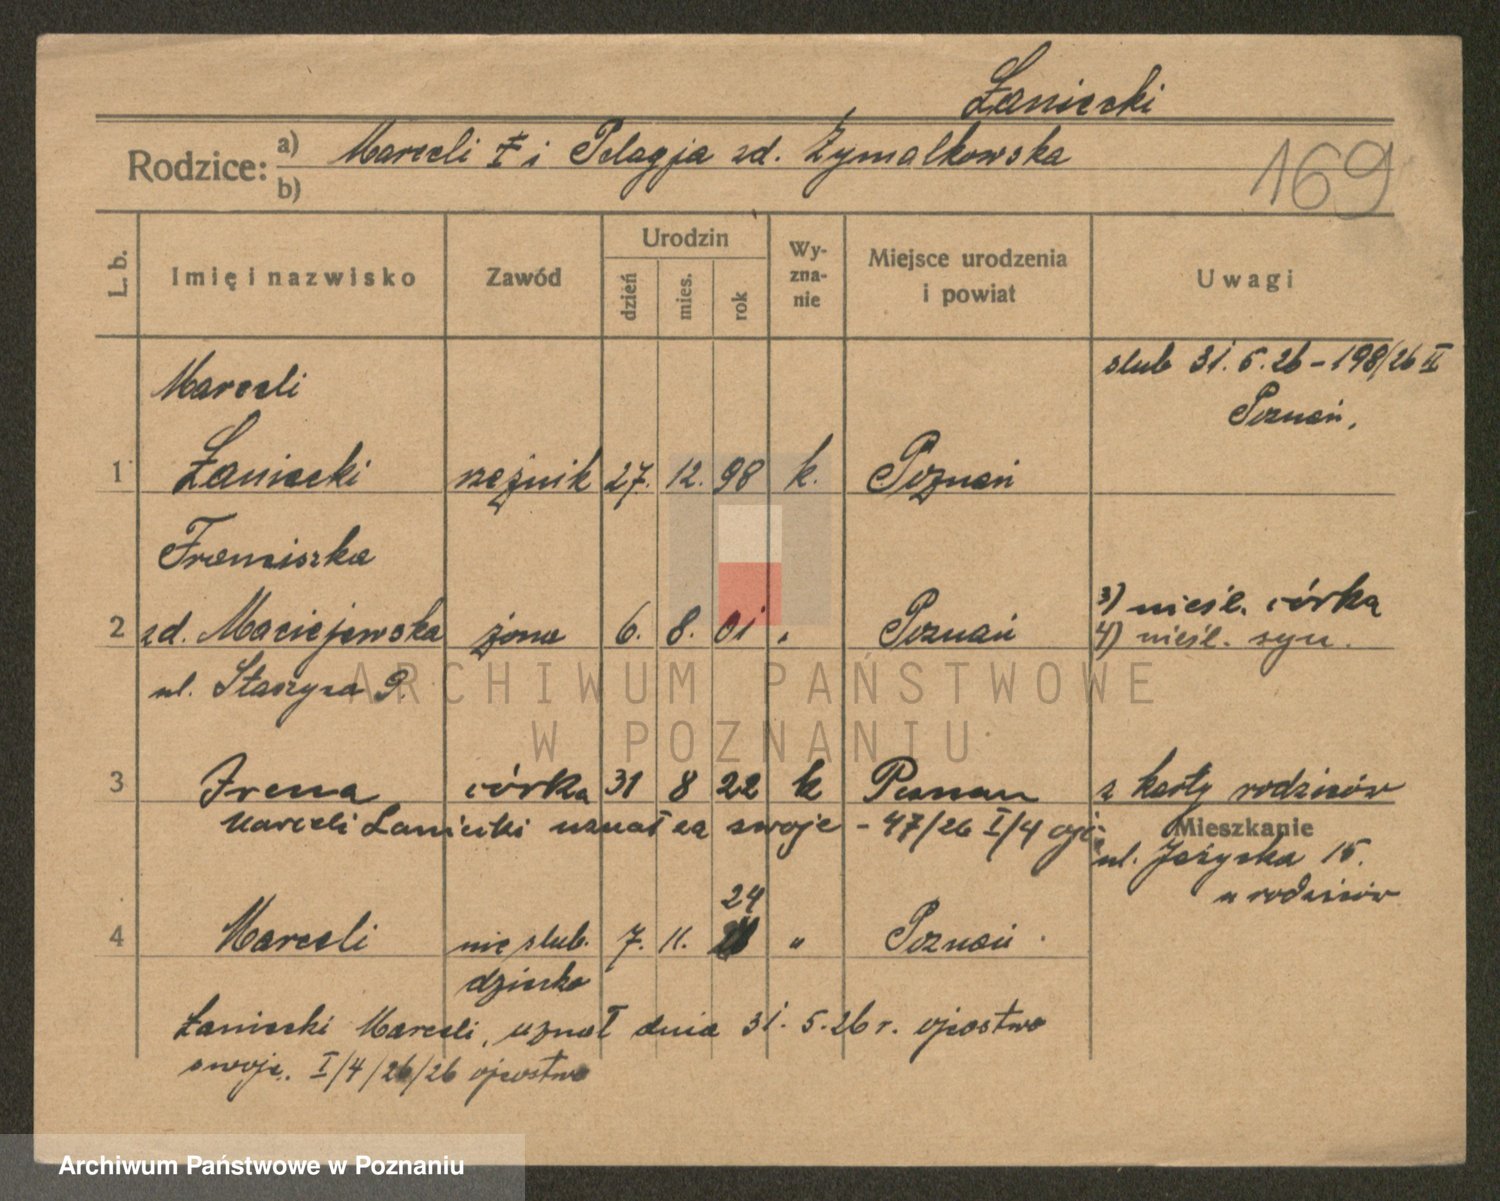 Łaniecki
Rodzice: a) Marceli I i Pelagja zd. Żymałkowska
b)
169
L. b.
Imię i nazwisko
Zawód
Urodzin
dzień
mies.
rok
Wy-
zna-
nie
Miejsce urodzenia
i powiat
Uwagi
Marceli
slub 31.5.26 - 198/26 II
Poznań,
1 Łaniecki rzeźnik 27. 12. 98 k. Poznań
Franciszka
3) nieśl. córka
2 zd. Maciejewska żona 6. 8. 01 " Poznań
4) nieśl. syn.
ul. Staszyca 9.
ARCHIWUM PAŃSTWOWE
W POZNANIU
3 Irena córka 31 8 22 k Poznan z karty rodziców
Marceli Laniecki uznał za swoje - 47/26 I/4 ojc.
Mieszkanie
ul. Jeżycka 15.
u rodziców
24
4 Marceli nieslub. 7. 11. " Poznań
dziecko
Łaniecki Marceli, uznał dnia 31.5.26 r. ojcostwo
swoje. I/4/26/26 ojcostwo
Archiwum Państwowe w Poznaniu